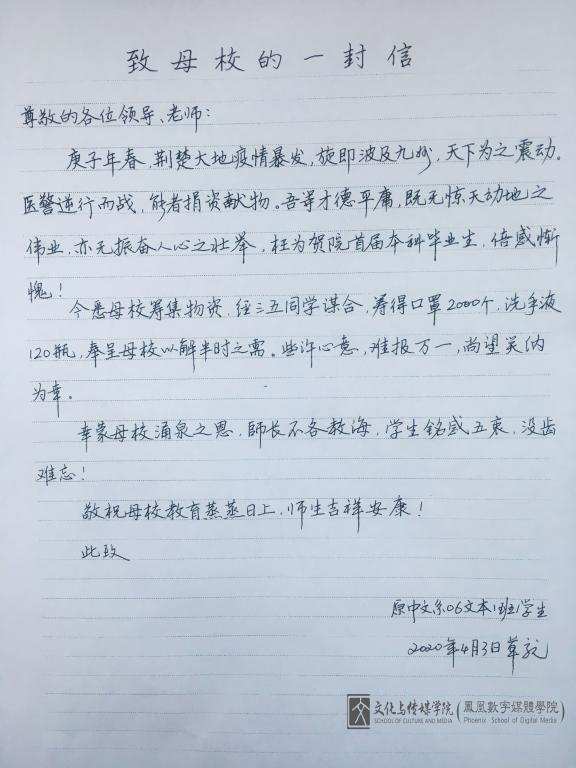 致母校的一封信
尊敬的各位领导、老师：
庚子年春，荆楚大地疫情暴发，旋即波及九州，天下为之震动。
医警逆行而战，能者捐资献物。吾等才德平庸，既无惊天动地之
伟业，亦无振奋人心之壮举，枉为贺院首届本科毕业生，倍感惭
愧！
今悉母校筹集物资，经三五同学谋合，筹得口罩2000个，洗手液
120瓶，奉呈母校以解半时之需。些许心意，难报万一，尚望笑纳
为幸。
幸蒙母校涌泉之恩，師长不吝教诲，学生铭感五衷，没齿
难忘！
敬祝母校教育蒸蒸日上，师生吉祥安康！
此致
原中文系06文本1班学生
2020年4月3日草就
文化与传媒学院 SCHOOL OF CULTURE AND MEDIA (鳳凰數字媒體學院 Phoenix School of Digital Media)